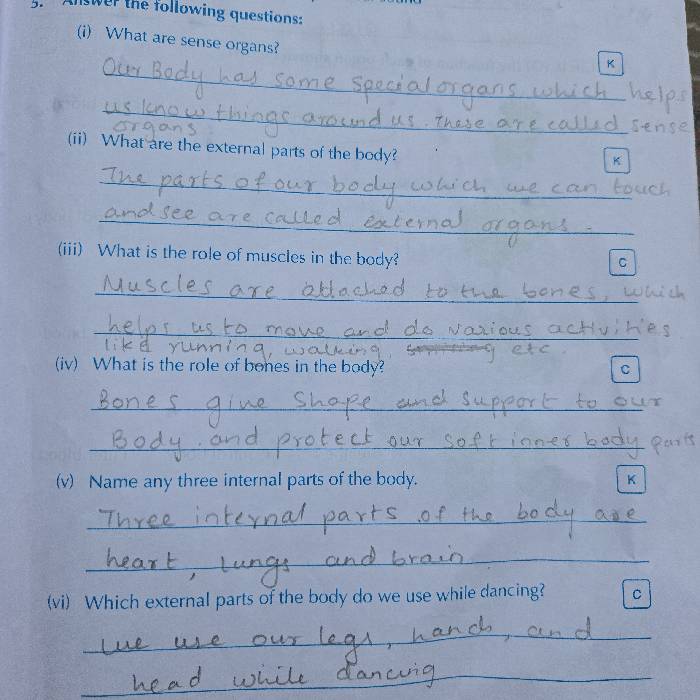 5. Answer the following questions:
(i) What are sense organs?
K
Our Body has some special organs which helps
us know things around us. These are called sense
organs
(ii) What are the external parts of the body?
K
The parts of our body which we can touch
and see are called external organs.
(iii) What is the role of muscles in the body?
C
Muscles are attached to the bones, which
helps us to move and do various activities
like running, walking, etc.
(iv) What is the role of bones in the body?
C
Bones give Shape and support to our
Body. and protect our soft inner body parts
(v) Name any three internal parts of the body.
K
Three internal parts of the body are
heart, lungs and brain
(vi) Which external parts of the body do we use while dancing?
C
we use our legs, hands, and
head while dancing